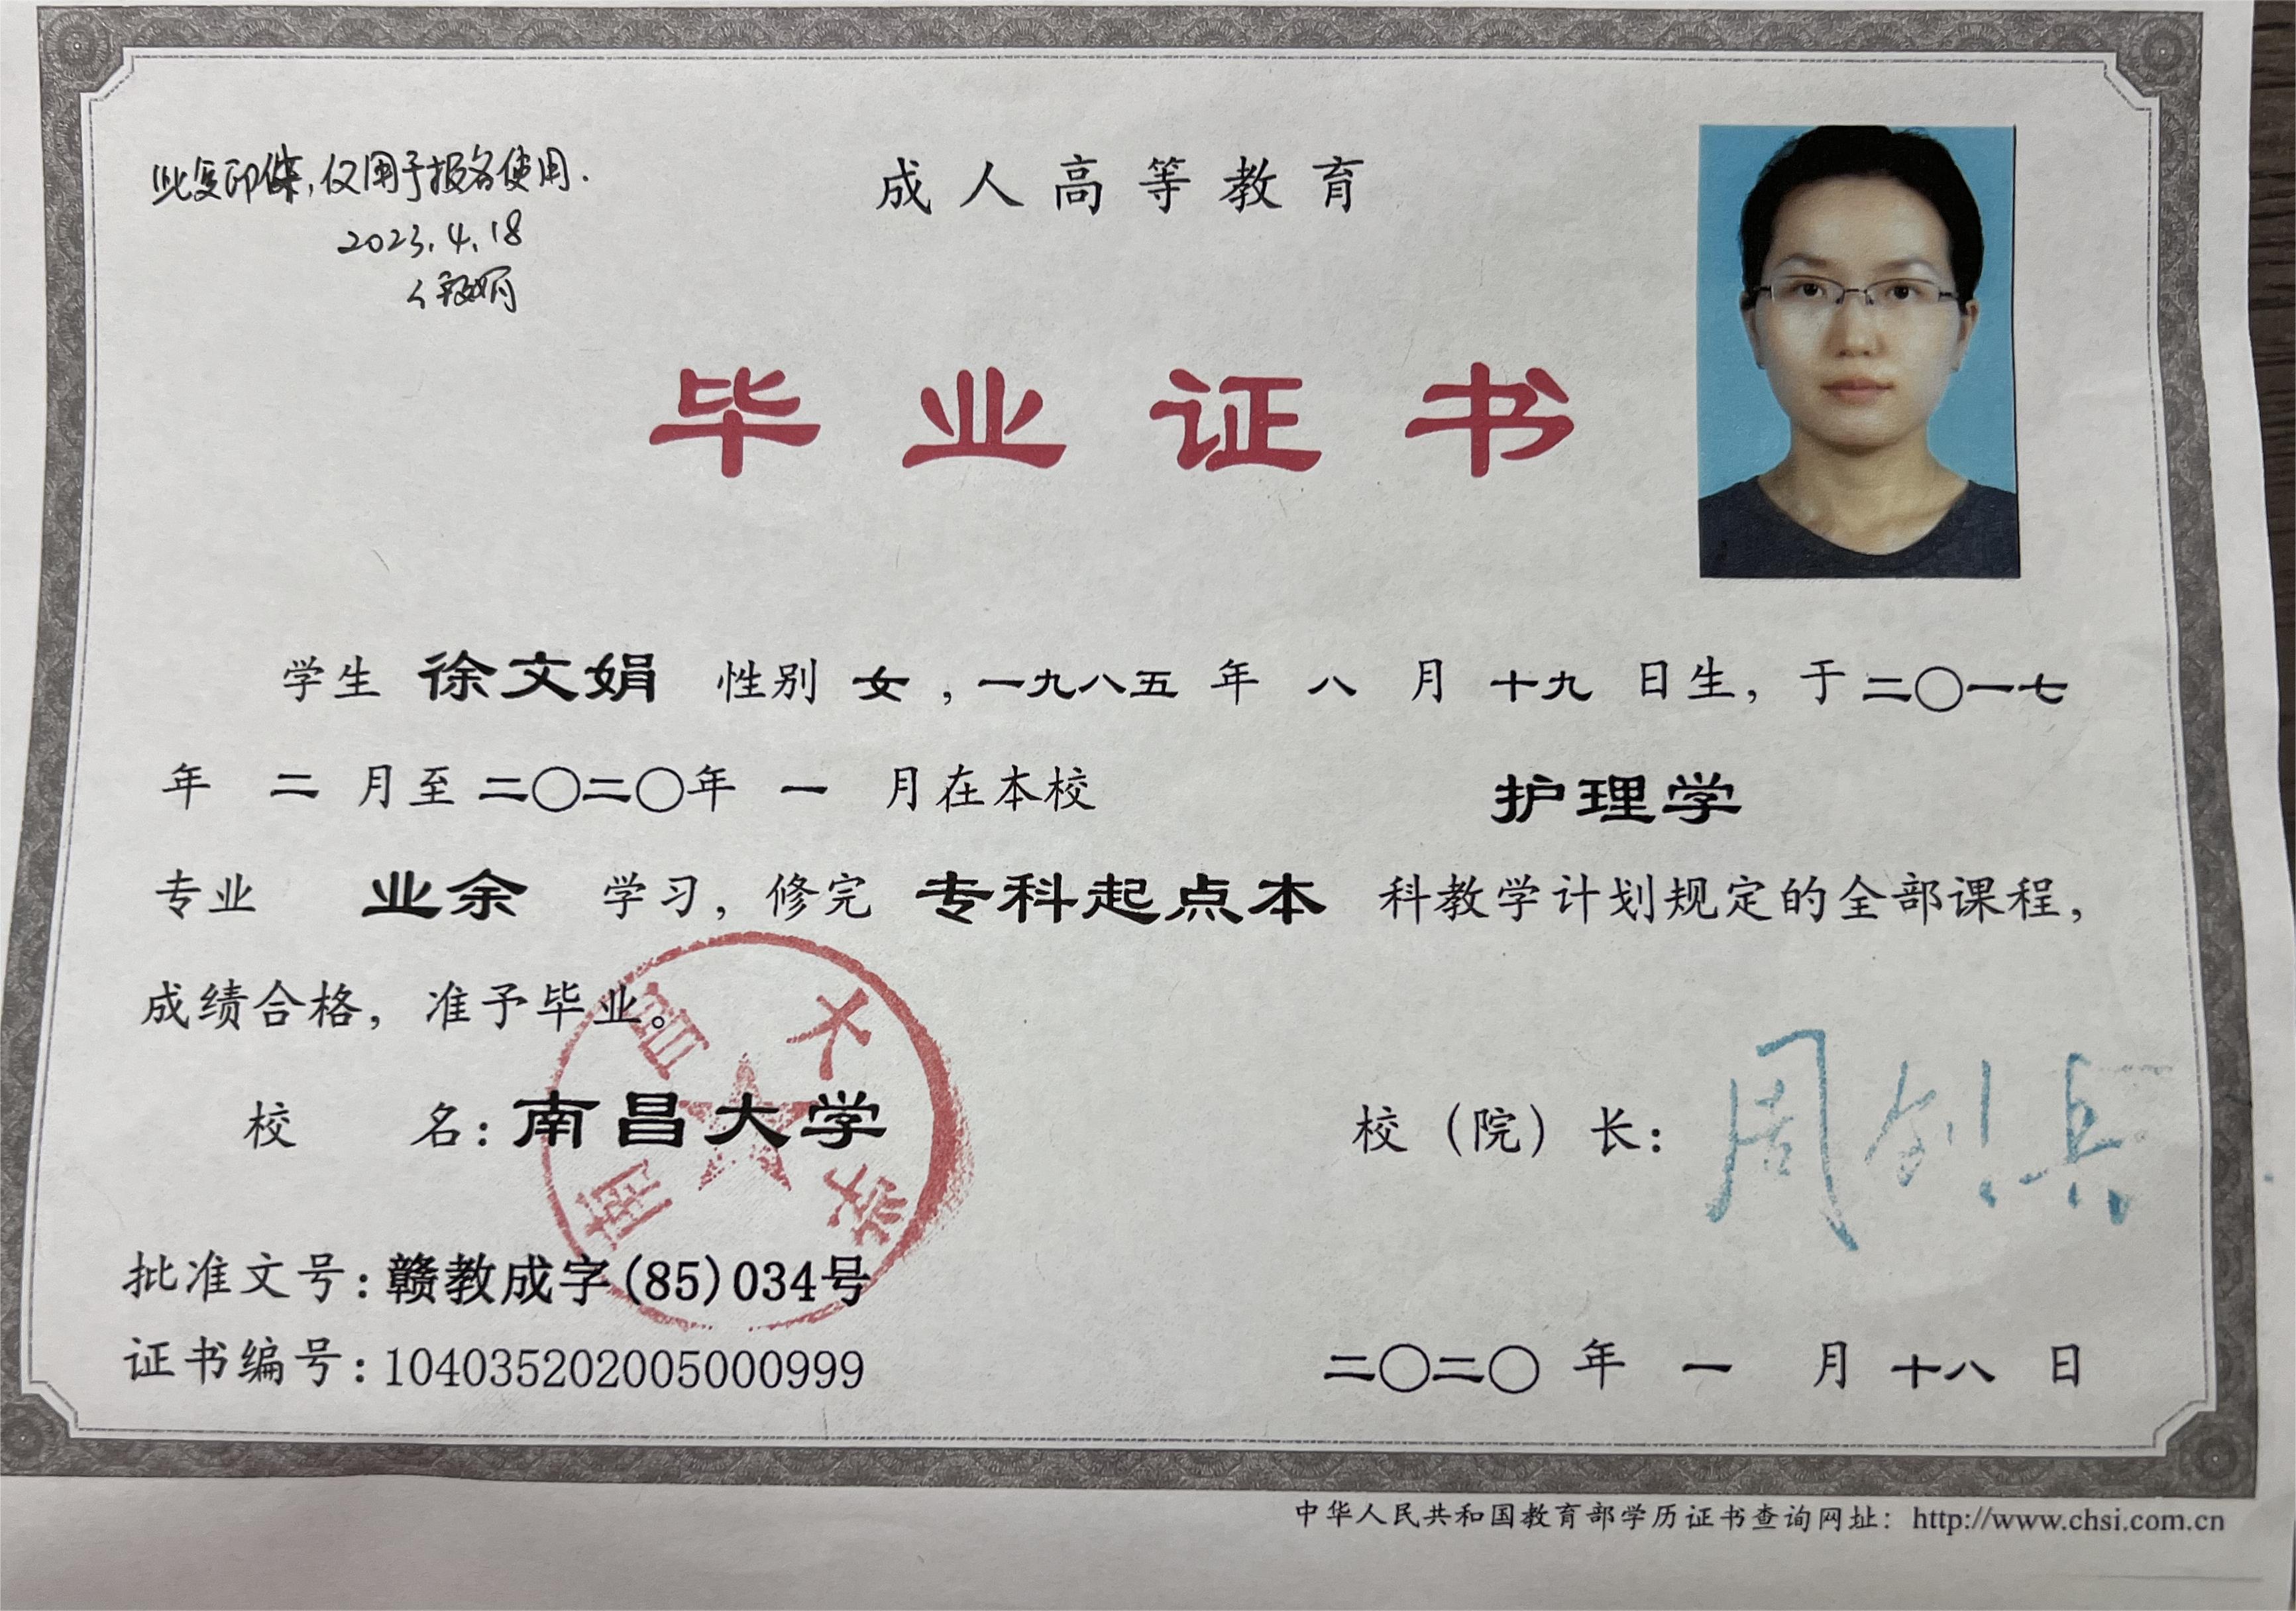 此复印件,仅用于报名使用.
2023.4.18
成人高等教育
毕业证书
学生 徐文娟 性别 女 ,一九八五 年 八 月 十九 日生, 于二〇一七
年 二 月至二〇二〇年 一 月在本校 护理学
专业 业余 学习, 修完 专科起点本 科教学计划规定的全部课程,
成绩合格, 准予毕业。
南昌大学
校 名: 南昌大学 校(院)长: 周创兵
批准文号: 赣教成字(85)034号
证书编号: 104035202005000999 二〇二〇 年 一 月 十八 日
中华人民共和国教育部学历证书查询网址: http://www.chsi.com.cn